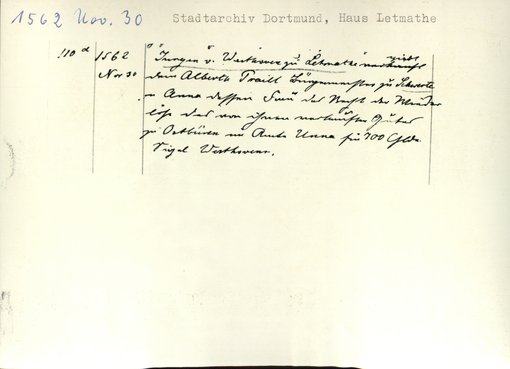 1562 Nov. 30 Stadtarchiv Dortmund, Haus Letmathe
110 d 1562 Jurgen v. Westhoven zu Letmathe
Nov 30 dem Albertz Bürgermeister zu Schwerte
u Anna dessen Frau das Recht der Wieder
löse des von ihnen verkauften Gutes
zu Ostbüren im Amte Unna für 700 Gldn
Sigel Westhovens.